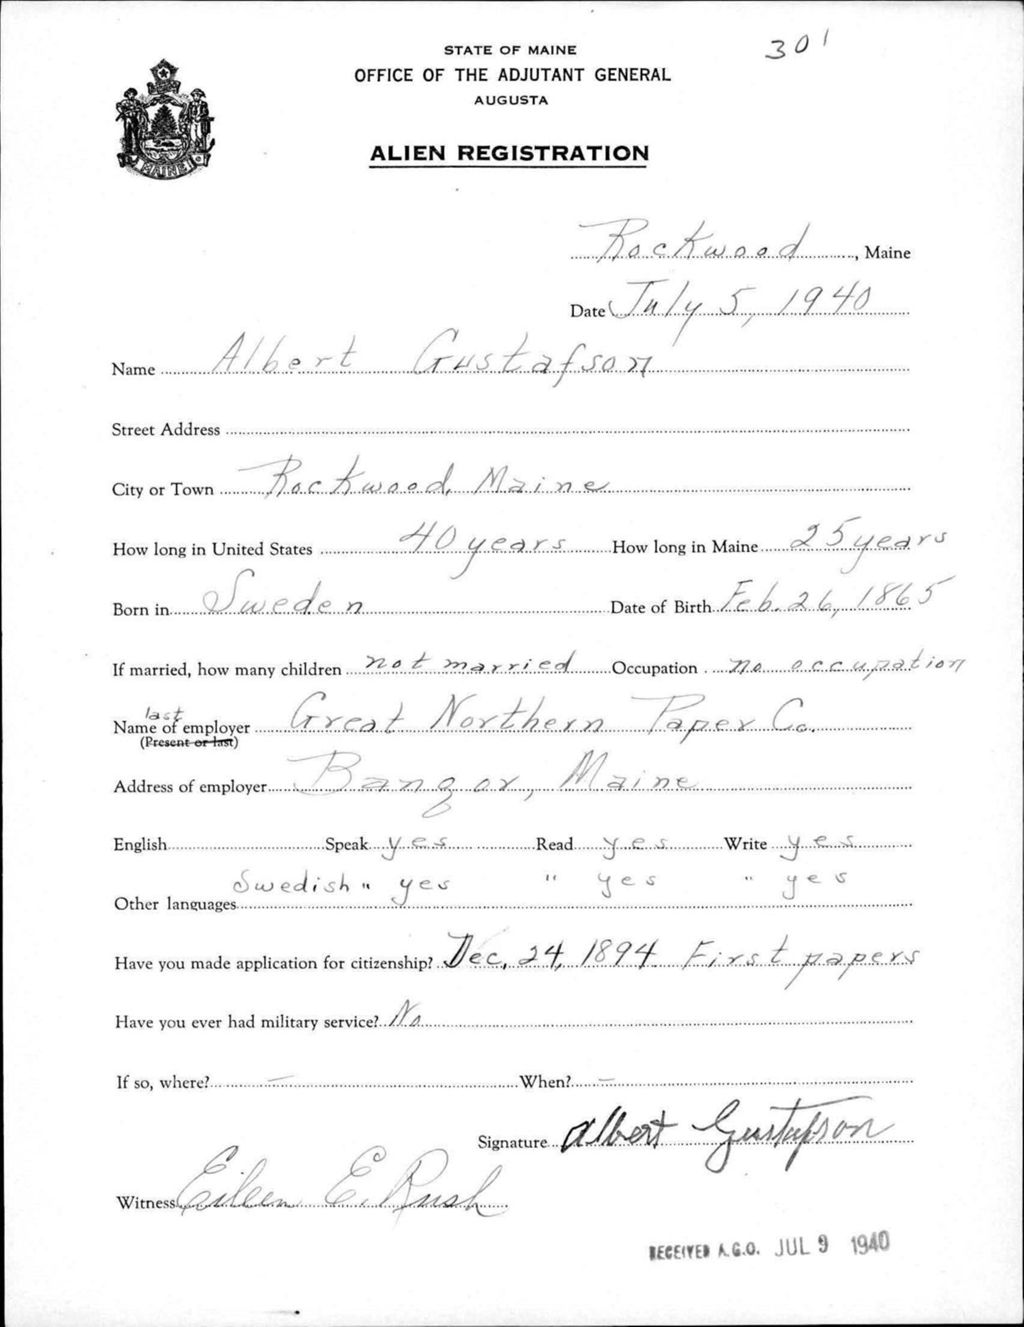 301
STATE OF MAINE
OFFICE OF THE ADJUTANT GENERAL
AUGUSTA
ALIEN REGISTRATION
MAINE
Rockwood, Maine
Date July 5, 1940
Name Albert Gustafson
Street Address
City or Town Rockwood, Maine
How long in United States 40 years How long in Maine 25 years
Born in Sweden Date of Birth Feb. 26, 1865
If married, how many children not married Occupation no occupation
last
Name of employer Great Northern Paper Co.
(Present or last)
Address of employer Bangor, Maine
English Speak yes Read yes Write yes
Swedish " yes " yes " yes
Other languages
Have you made application for citizenship? Dec. 24, 1894 First papers
Have you ever had military service? No
If so, where? — When? —
Signature Albert Gustafson
Witness Eileen E. Rush
RECEIVED A.G.O. JUL 9 1940